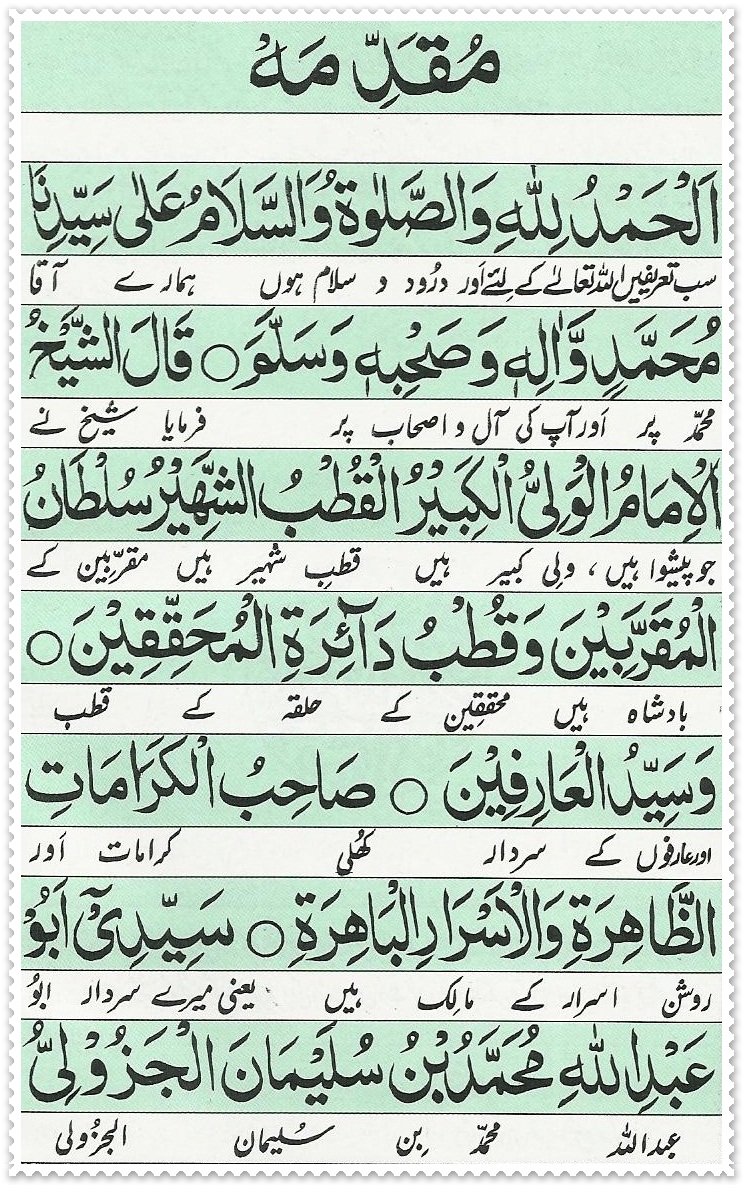 مُقَدِّمَهْ
اَلْحَمْدُ لِلّٰهِ وَالصَّلٰوةُ وَالسَّلَامُ عَلٰى سَيِّدِنَا
سب تعریفیں اللہ تعالےٰ کے لئے اَور درُود و سلام ہوں ہمارے آقا
مُحَمَّدٍ وَّاٰلِهٖ وَصَحْبِهٖ وَسَلَّمَ ○ قَالَ الشَّيْخُ
محمّد پر اَور آپ کی آل و اصحاب پر فرمایا شیخ نے
الْاِمَامُ الْوَلِىُّ الْكَبِيْرُ الْقُطْبُ الشَّهِيْرُ سُلْطَانُ
جو پیشوا ہیں ، ولی کبیر ہیں قطبِ شہیر ہیں مقرّبین کے
الْمُقَرَّبِيْنَ وَقُطْبُ دَآئِرَةِ الْمُحَقِّقِيْنَ ○
بادشاہ ہیں محققین کے حلقہ کے قطب
وَسَيِّدُ الْعَارِفِيْنَ ○ صَاحِبُ الْكَرَامَاتِ
اور عارفوں کے سردار کھُلی کرامات اَور
الظَّاهِرَةِ وَالْاَسْرَارِ الْبَاهِرَةِ ○ سَيِّدِىْٓ اَبُوْ
روشن اسرار کے مالِک ہیں یعنی میرے سردار ابوُ
عَبْدِ اللهِ مُحَمَّدُ بْنُ سُلَيْمَانَ الْجَزُوْلِىُّ
عبداللہ محمّد بِن سُلیمان الجزُولی